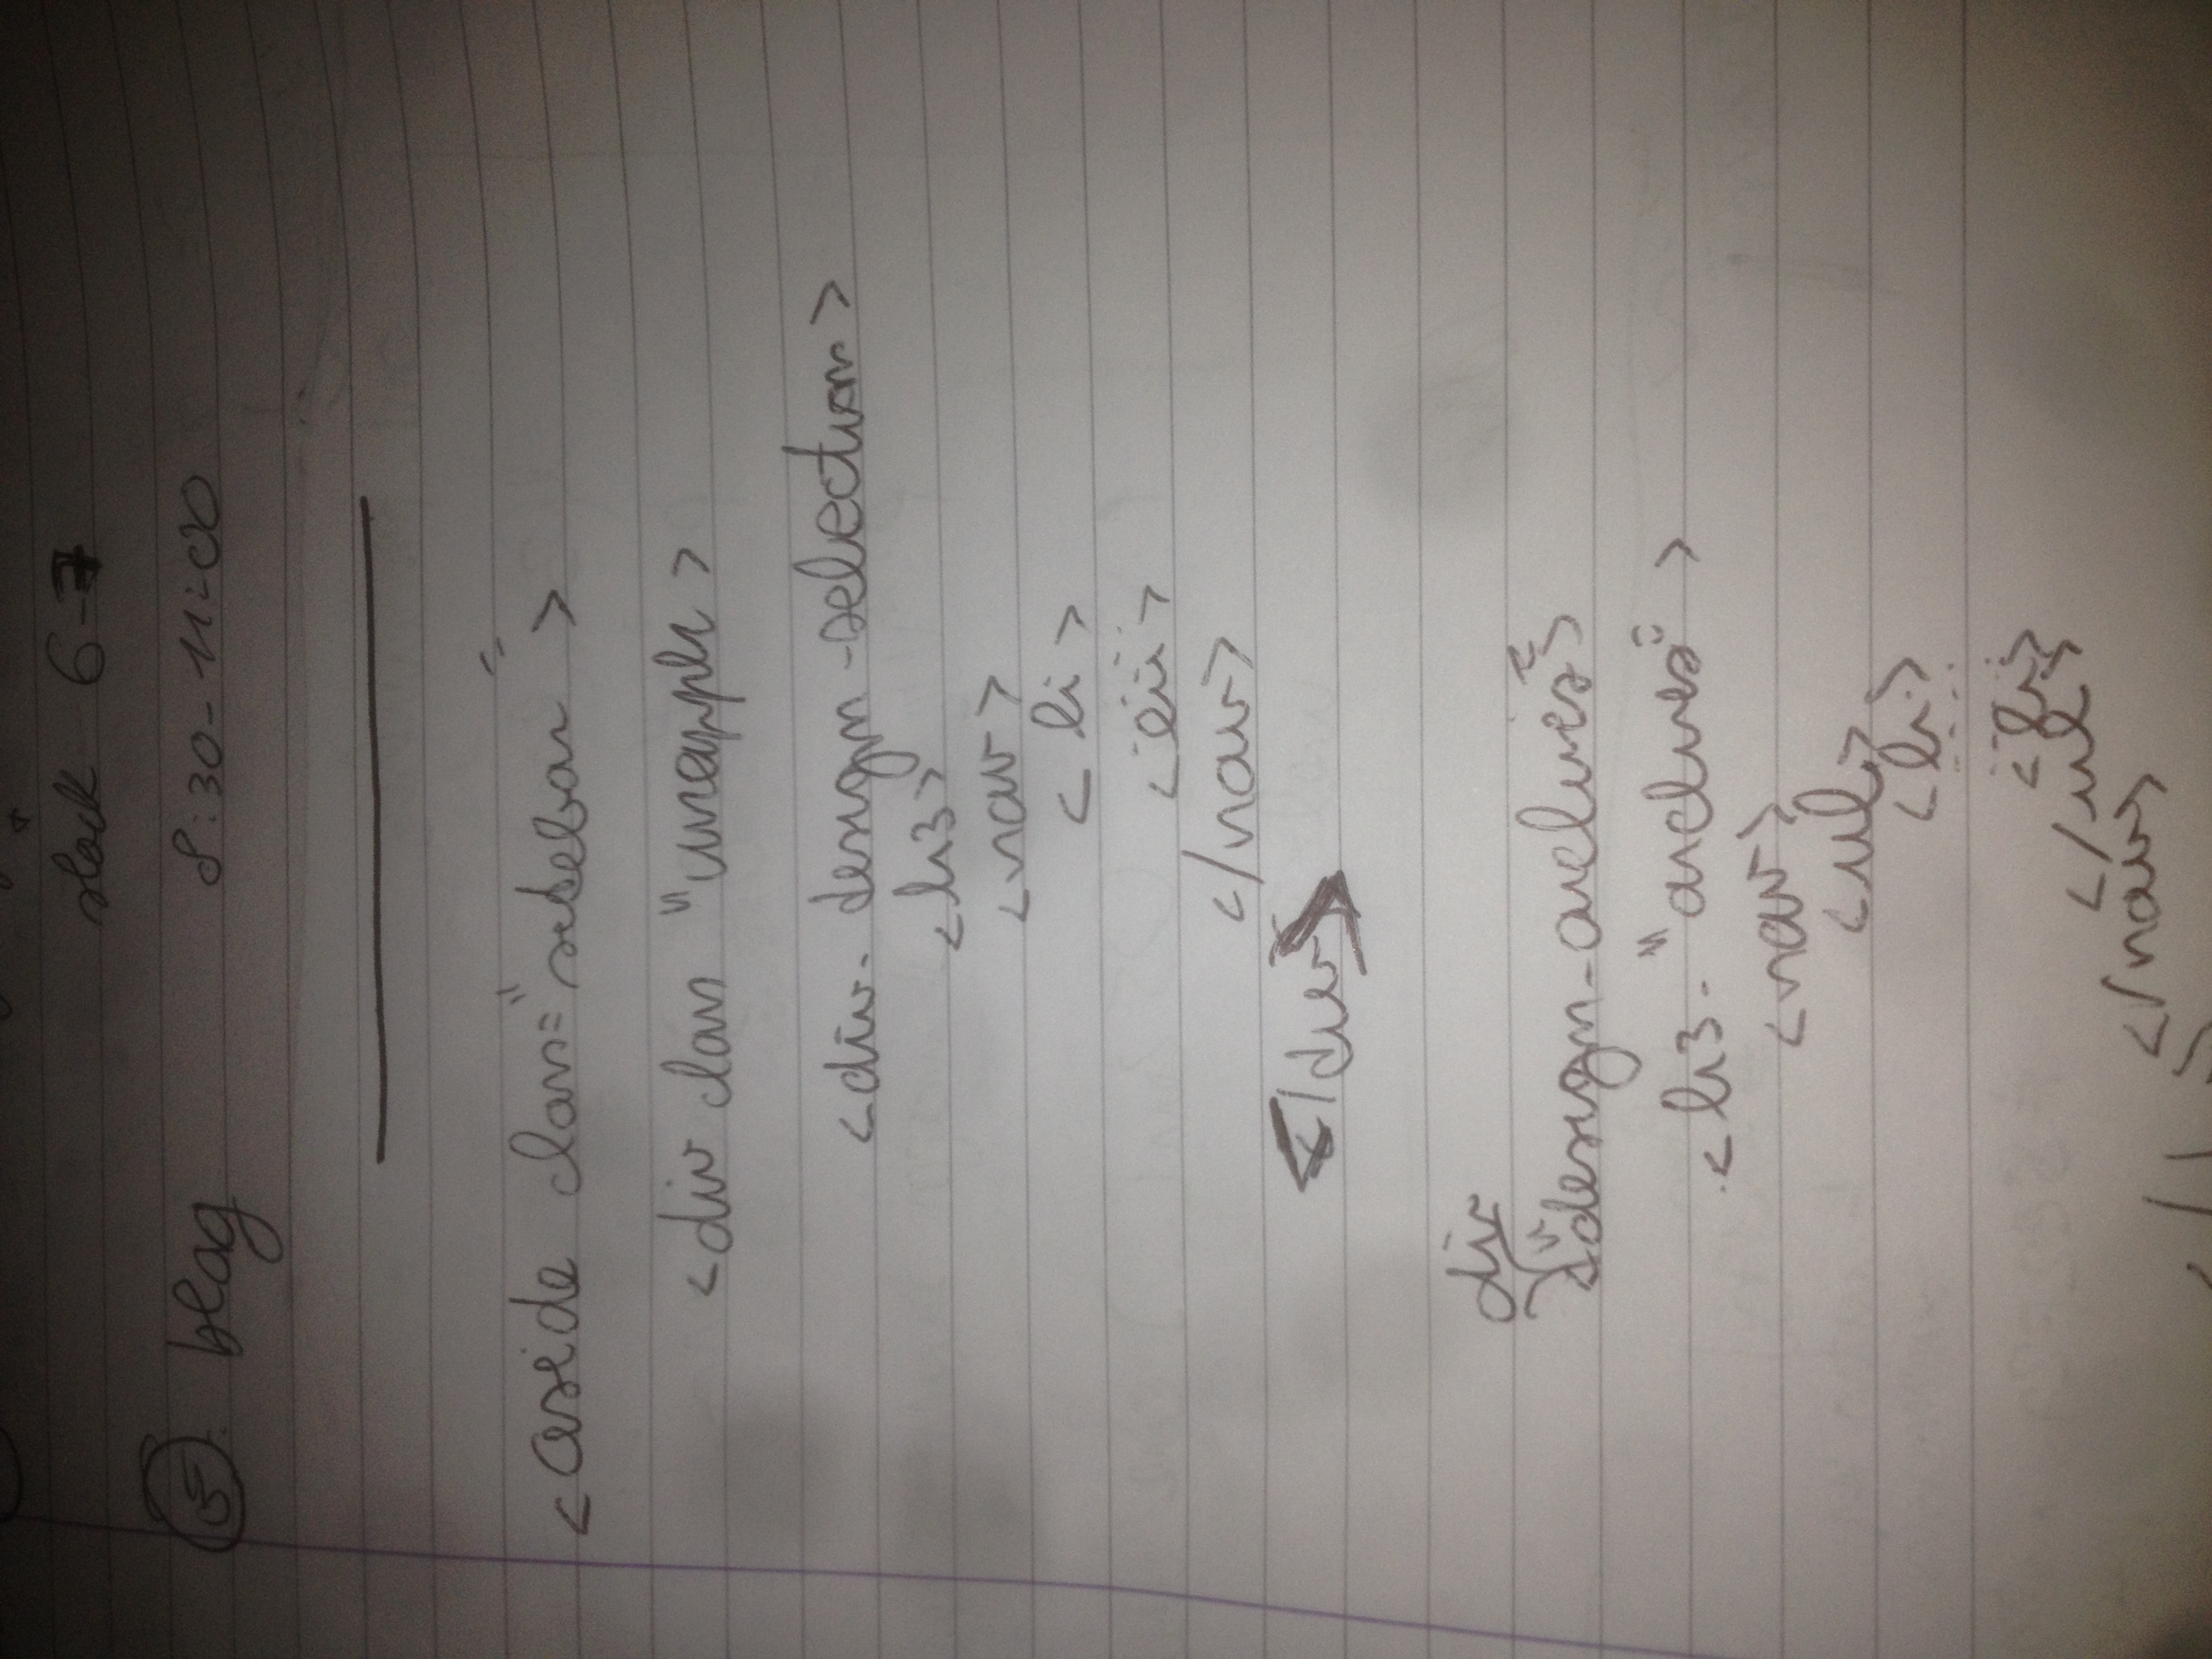 slack 6-7
5 blog 8:30-11:00
<aside class="sidebar">
<div class "wrapper>
<div. design-selection>
<h3>
<nav>
<li>
<li>
</nav>
</div>
div
<"design-archives">
<h3. "archives">
<nav>
<ul>
<li>
<li>
</ul>
</nav>
</div>